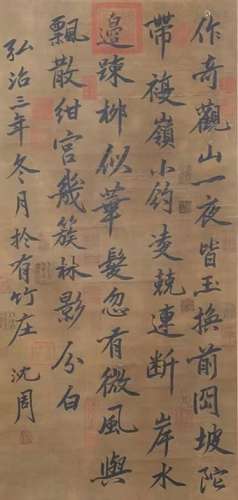 作奇觀山一夜皆玉換前岡坡陀
帶複嶺小釣凌兢連斷岸水
邊踈柳似華髮忽有微風與
飄散紺宮幾簇林影分白
弘治三年冬月於有竹庄沈周